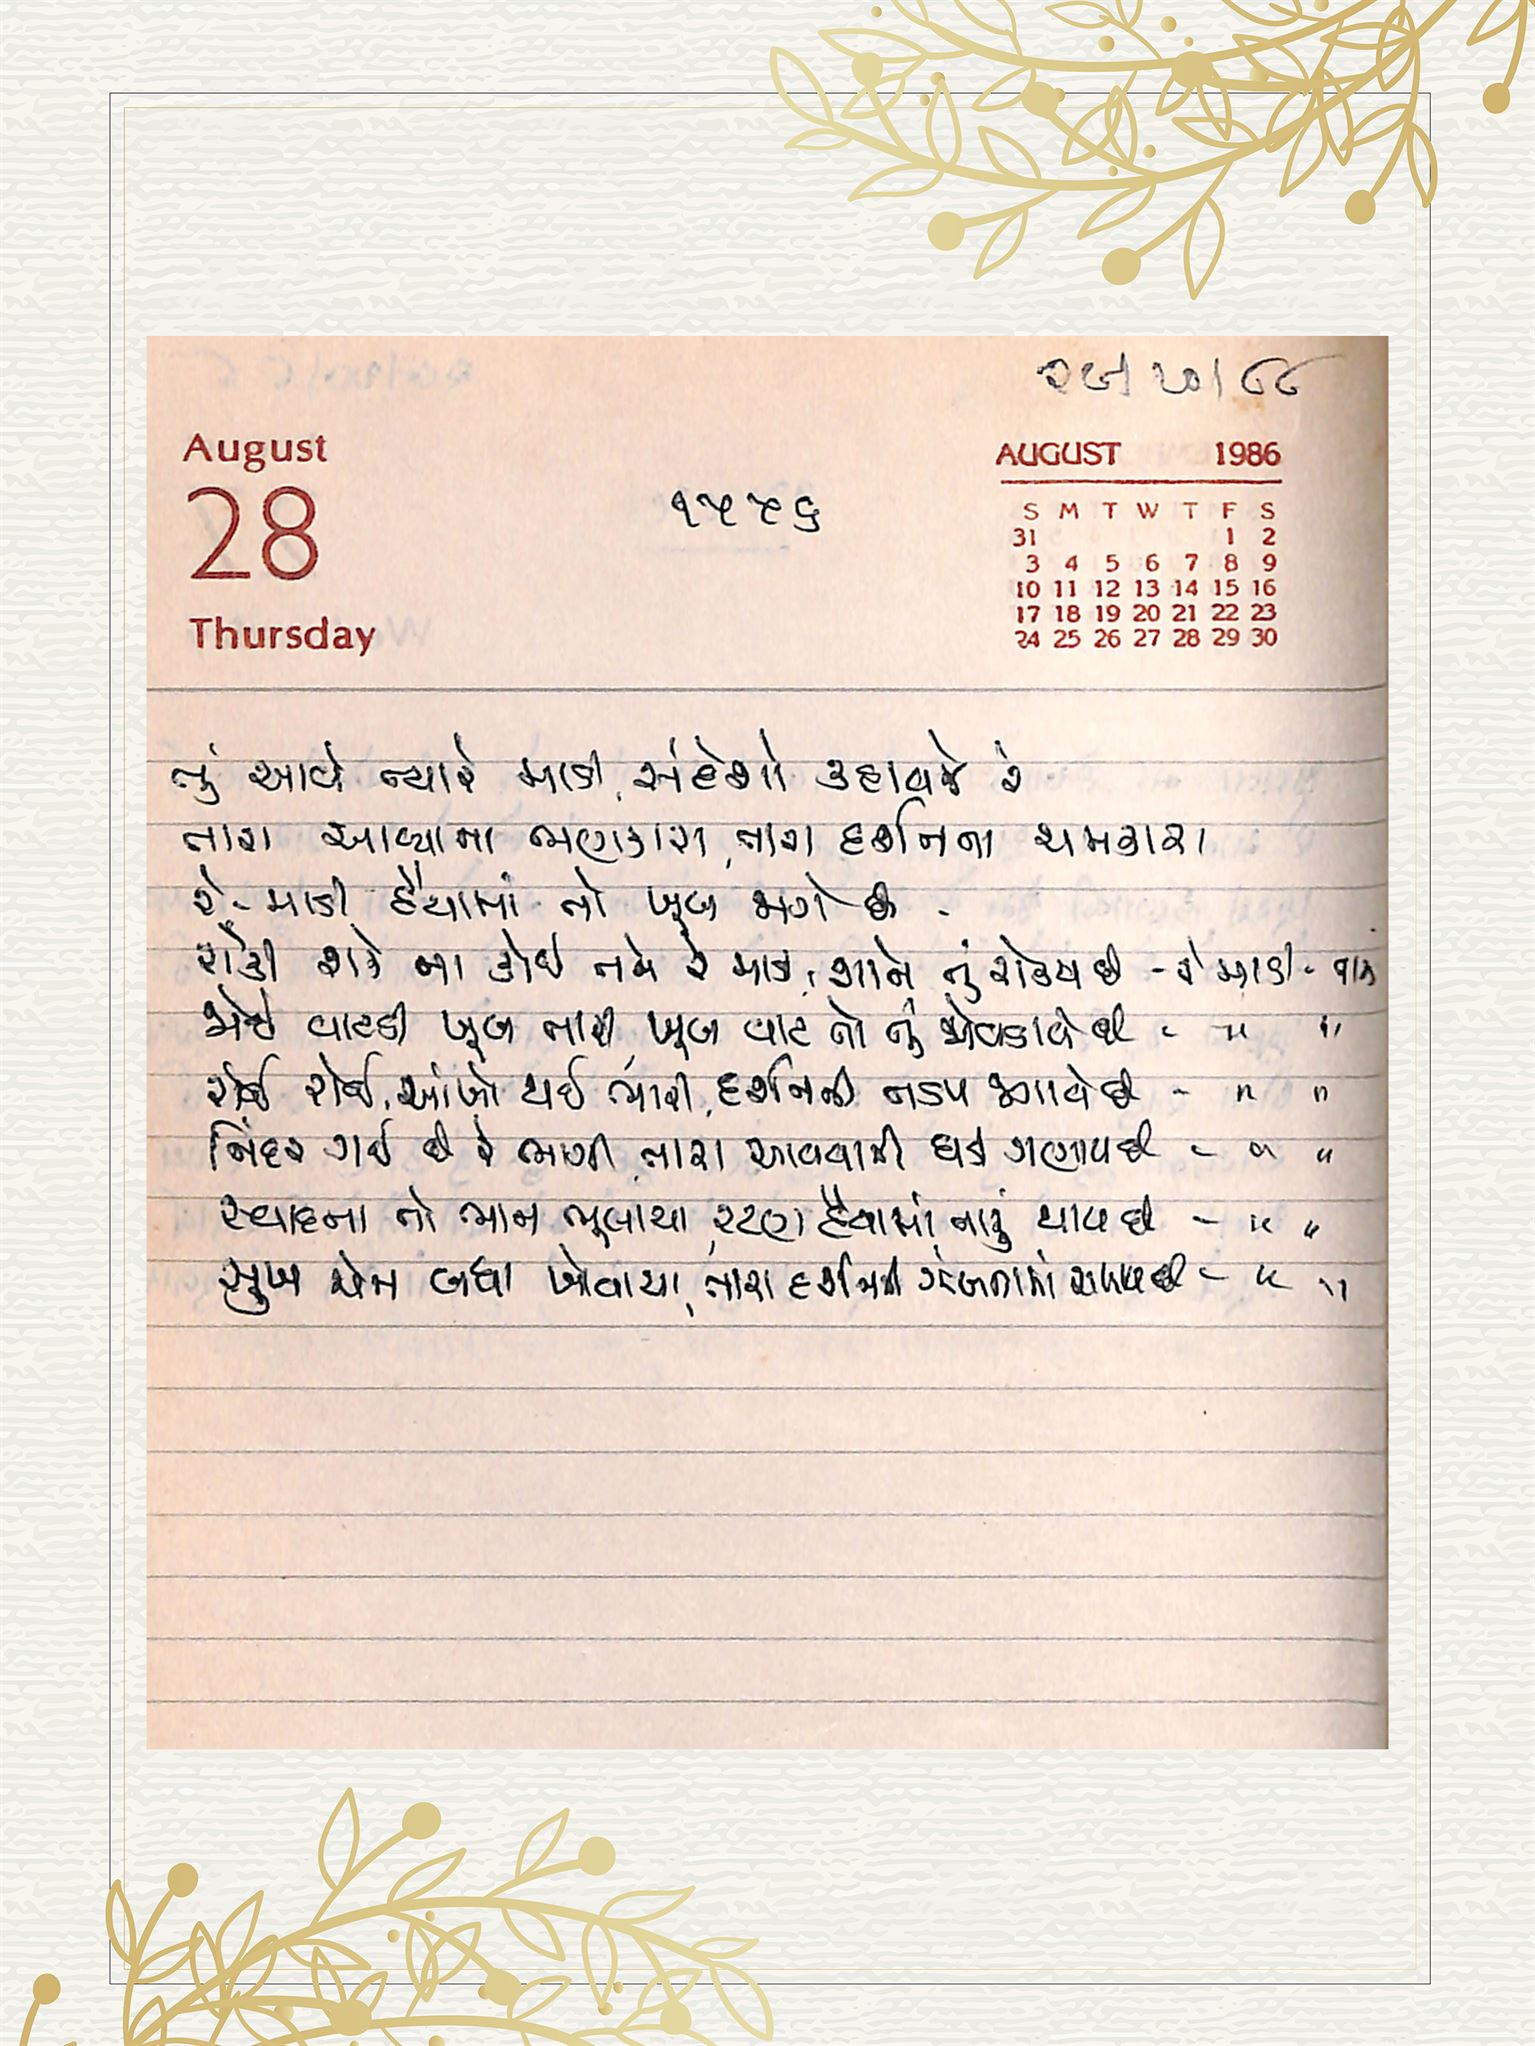 ૨૯/૧૦/૮૮
August
28
Thursday
૧૫૫૬
AUGUST 1986
S M T W T F S
31 1 2
3 4 5 6 7 8 9
10 11 12 13 14 15 16
17 18 19 20 21 22 23
24 25 26 27 28 29 30
તું આવે ત્યારે માડી, સંદેશો કહાવજે રે
તારા આવ્યાના ભણકારા, તારા દર્શનના ચમકારા
રે - માડી હૈયામાં તો ખૂબ જાગે છે -
રોકી શકે ના કોઈ તને રે માડી, શાને તું રોકાય છે - રે માડી -
જોઈ વાટડી ખૂબ તારી, ખૂબ વાટ તો તું જોવડાવે છે - " "
રોઈ રોઈ, આંખો થઈ ભારી, દર્શનની તડપ જગાવે છે - " "
નિંદર ગઈ છે રે ભાગી, તારા આવવાની ઘડી ગણાય છે - " "
સ્વાદના તો ભાન ભૂલાયા, રટણ હૈયામાં તારું થાય છે - " "
સુખ ચેન બધા ખોવાયા, તારા દર્શનની છે - " "